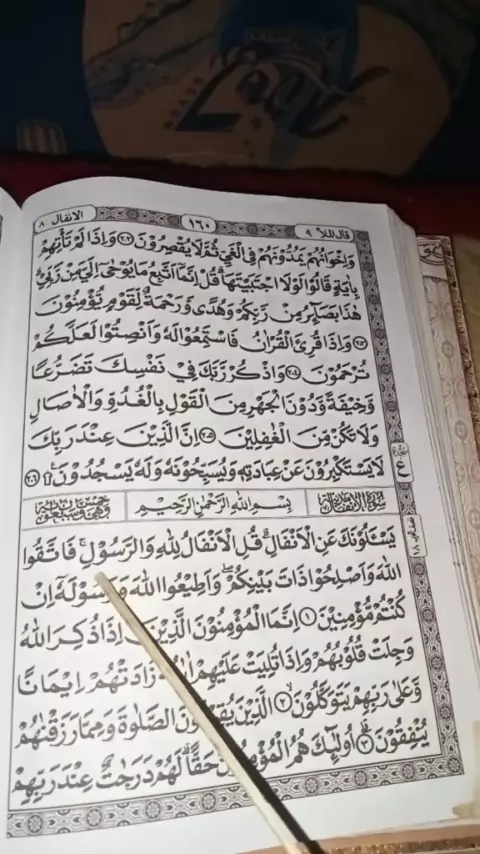 الانفال ٨
١٦٠
قال الملا ٩
وَاِخْوَانُهُمْ يَمُدُّوْنَهُمْ فِي الْغَيِّ ثُمَّ لَا يُقْصِرُوْنَ ۝٢٠٢ وَاِذَا لَمْ تَاْتِهِمْ
بِاٰيَةٍ قَالُوْا لَوْلَا اجْتَبَيْتَهَا ؕ قُلْ اِنَّمَاۤ اَتَّبِعُ مَا يُوْحٰۤى اِلَيَّ مِنْ رَّبِّيْ ۚ
هٰذَا بَصَآئِرُ مِنْ رَّبِّكُمْ وَهُدًى وَّرَحْمَةٌ لِّقَوْمٍ يُّؤْمِنُوْنَ
۝٢٠٣ وَاِذَا قُرِئَ الْقُرْاٰنُ فَاسْتَمِعُوْا لَهٗ وَاَنْصِتُوْا لَعَلَّكُمْ
تُرْحَمُوْنَ ۝٢٠٤ وَاذْكُرْ رَّبَّكَ فِيْ نَفْسِكَ تَضَرُّعًا
وَّخِيْفَةً وَّدُوْنَ الْجَهْرِ مِنَ الْقَوْلِ بِالْغُدُوِّ وَالْاٰصَالِ
وَلَا تَكُنْ مِّنَ الْغٰفِلِيْنَ ۝٢٠٥ اِنَّ الَّذِيْنَ عِنْدَ رَبِّكَ
لَا يَسْتَكْبِرُوْنَ عَنْ عِبَادَتِهٖ وَيُسَبِّحُوْنَهٗ وَلَهٗ يَسْجُدُوْنَ ۝٢٠٦
بِسْمِ اللهِ الرَّحْمٰنِ الرَّحِيْمِ
يَسْـَٔلُوْنَكَ عَنِ الْاَنْفَالِ ؕ قُلِ الْاَنْفَالُ لِلّٰهِ وَالرَّسُوْلِ ۚ فَاتَّقُوا
اللهَ وَاَصْلِحُوْا ذَاتَ بَيْنِكُمْ ۪ وَاَطِيْعُوا اللهَ وَرَسُوْلَهٗۤ اِنْ
كُنْتُمْ مُّؤْمِنِيْنَ ۝١ اِنَّمَا الْمُؤْمِنُوْنَ الَّذِيْنَ اِذَا ذُكِرَ اللهُ
وَجِلَتْ قُلُوْبُهُمْ وَاِذَا تُلِيَتْ عَلَيْهِمْ زَادَتْهُمْ اِيْمَانًا
وَّعَلٰى رَبِّهِمْ يَتَوَكَّلُوْنَ ۝٢ الَّذِيْنَ يُقِيْمُوْنَ الصَّلٰوةَ وَمِمَّا رَزَقْنٰهُمْ
يُنْفِقُوْنَ ۝٣ اُولٰٓئِكَ هُمُ الْمُؤْمِنُوْنَ حَقًّا ؕ لَهُمْ دَرَجٰتٌ عِنْدَ رَبِّهِمْ